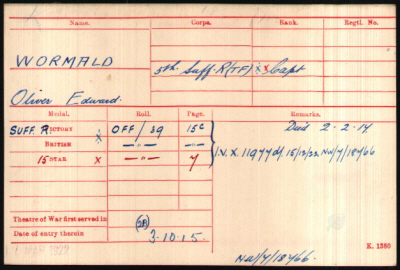 Name. Corps. Rank. Regtl. No.
WORMALD
5th. Suff. R(TF) xx Capt
Oliver Edward.
Medal. Roll. Page. Remarks.
SUFF. R. VICTORY x OFF/39 15C Died 2-2-17
BRITISH —"— —"— I.V.X. 11977 15/12/22 NW/7/18766
15 STAR x —"— 7
Theatre of War first served in (2B)
Date of entry therein 3-10-15.
MAR 1922 K. 1380
NW/7/18766.